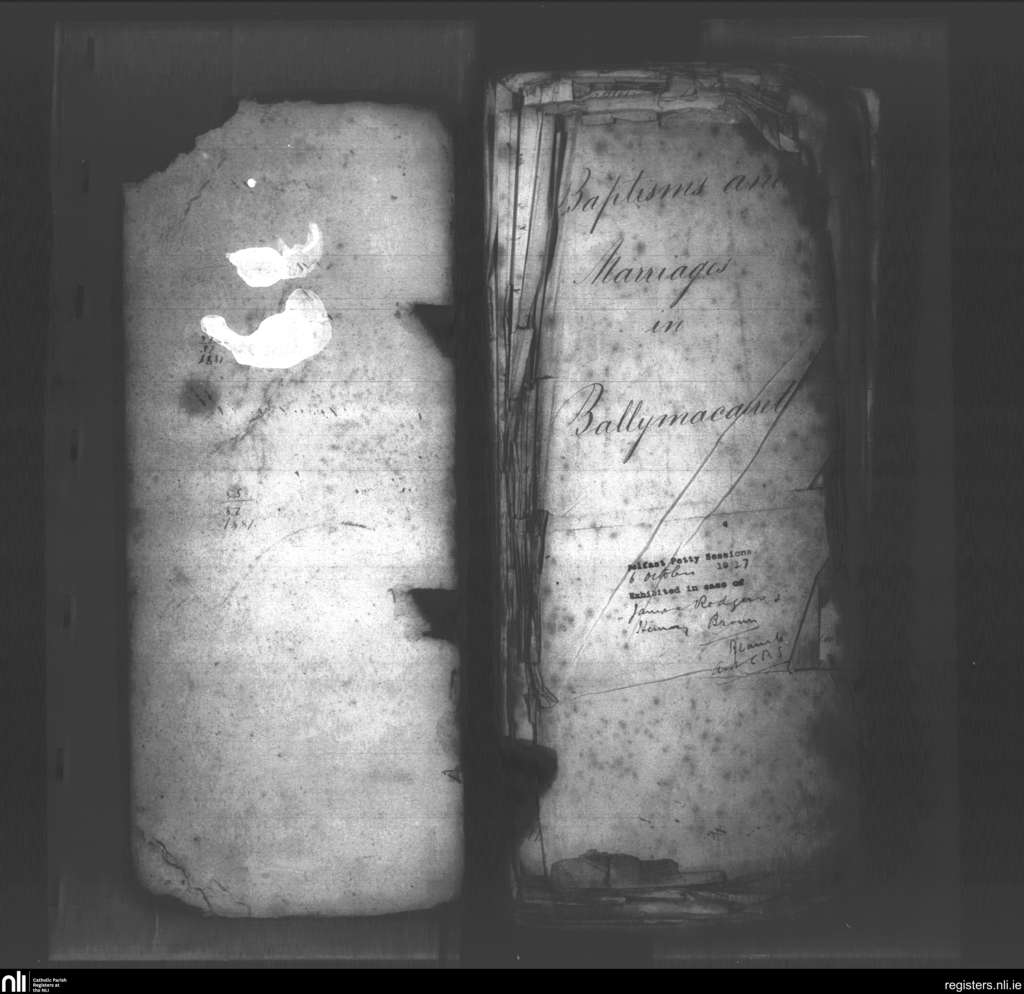 1841
55
57
1881
Baptisms and
Marriages
in
Ballymacarrett
Belfast Petty Sessions
6 October 1917
Exhibited in case of
James Rodgers &
Henry Brown
and CPS
nli
Catholic Parish
Registers at
the NLI
registers.nli.ie